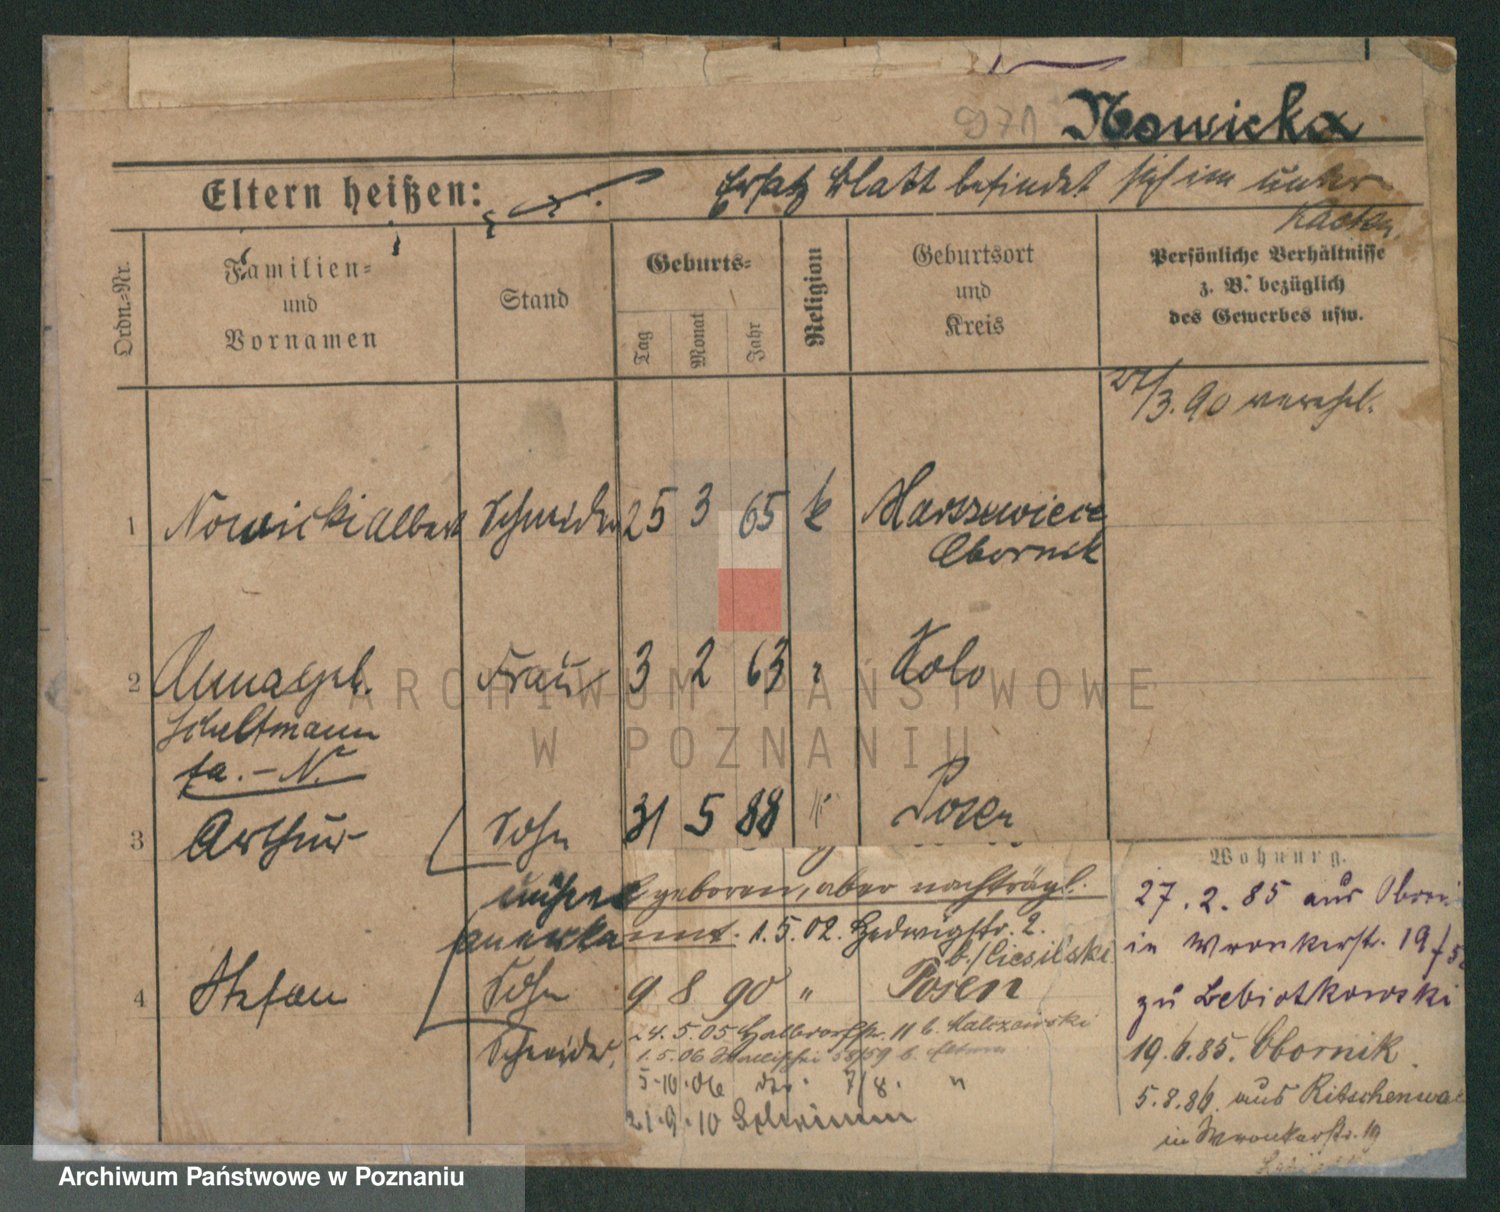 Nowicka
Eltern heißen:
Ersatz Blatt befindet sich im unter
Kasten.
Ordn.-Nr.
Familien-
und
Vornamen
Stand
Geburts-
Tag
Monat
Jahr
Religion
Geburtsort
und
Kreis
Persönliche Verhältnisse
z. B. bezüglich
des Gewerbes usw.
/3. 90 verehel.
1 Nowicki Albert Schneider 25 3 65 k
Obornik
2 Anna geb. Frau 3 2 63 " Kolo
fr. - N.
3 Arthur Sohn 31 5 88 " Posen
geboren, aber nachträgl.
anerkannt. 1. 5. 02. Hedwigstr. 2.
b/Ciesilski
4 Stefan Sohn 9 8 90 " Posen
Schneider,
24. 5. 05 Halbdorfstr. 11 b. Malczewski
1. 5. 06 58/59 b. Eltern
5.10.06 7/8. "
21.9.10 Schrimm
Wohnung.
27. 2. 85 aus
in Wronkerstr. 19
zu Lebiotkowski
19. 6. 85. Obornik
5. 8. 86. aus Ritschenwa
in Wronkerstr. 19
ARCHIWUM PAŃSTWOWE
W POZNANIU
Archiwum Państwowe w Poznaniu